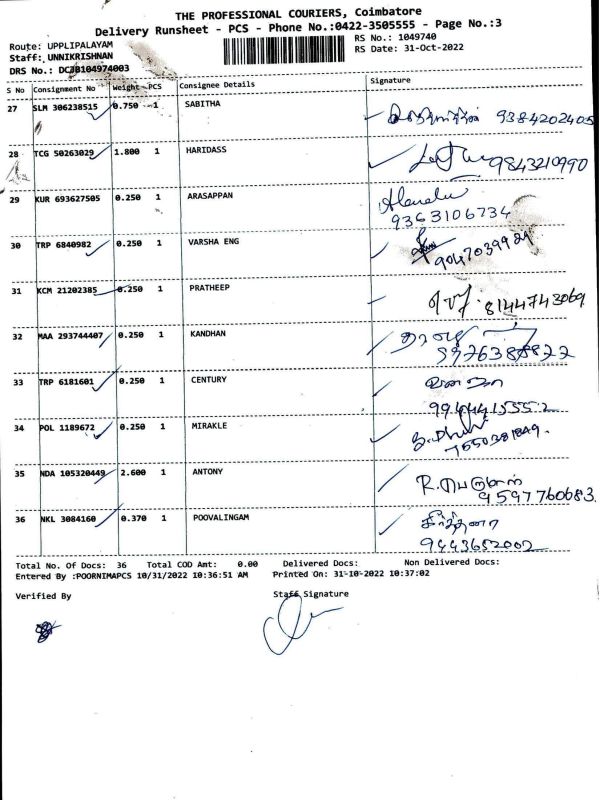 THE PROFESSIONAL COURIERS, Coimbatore
Delivery Runsheet - PCS - Phone No.:0422-3505555 - Page No.:3
Route: UPPLIPALAYAM RS No.: 1049740
Staff: UNNIKRISHNAN RS Date: 31-Oct-2022
DRS No.: DCJB104974003
S No Consignment No Weight PCS Consignee Details Signature
27 SLM 306238515 0.750 1 SABITHA 9384202405
28 TCG 50263029 1.800 1 HARIDASS 9843210990
29 KUR 693627505 0.250 1 ARASAPPAN
9363106734
30 TRP 6840982 0.250 1 VARSHA ENG
9047039929
31 KCM 21202385 0.250 1 PRATHEEP 8144743069
32 MAA 293744407 0.250 1 KANDHAN
33 TRP 6181601 0.250 1 CENTURY
34 POL 1189672 0.250 1 MIRAKLE
35 NDA 105320449 2.600 1 ANTONY R.பெருமாள்
9597760683
36 NKL 3084160 0.370 1 POOVALINGAM கீர்த்தனா
9443652002
Total No. Of Docs: 36 Total COD Amt: 0.00 Delivered Docs: Non Delivered Docs:
Entered By :POORNIMAPCS 10/31/2022 10:36:51 AM Printed On: 31-10-2022 10:37:02
Verified By Staff Signature